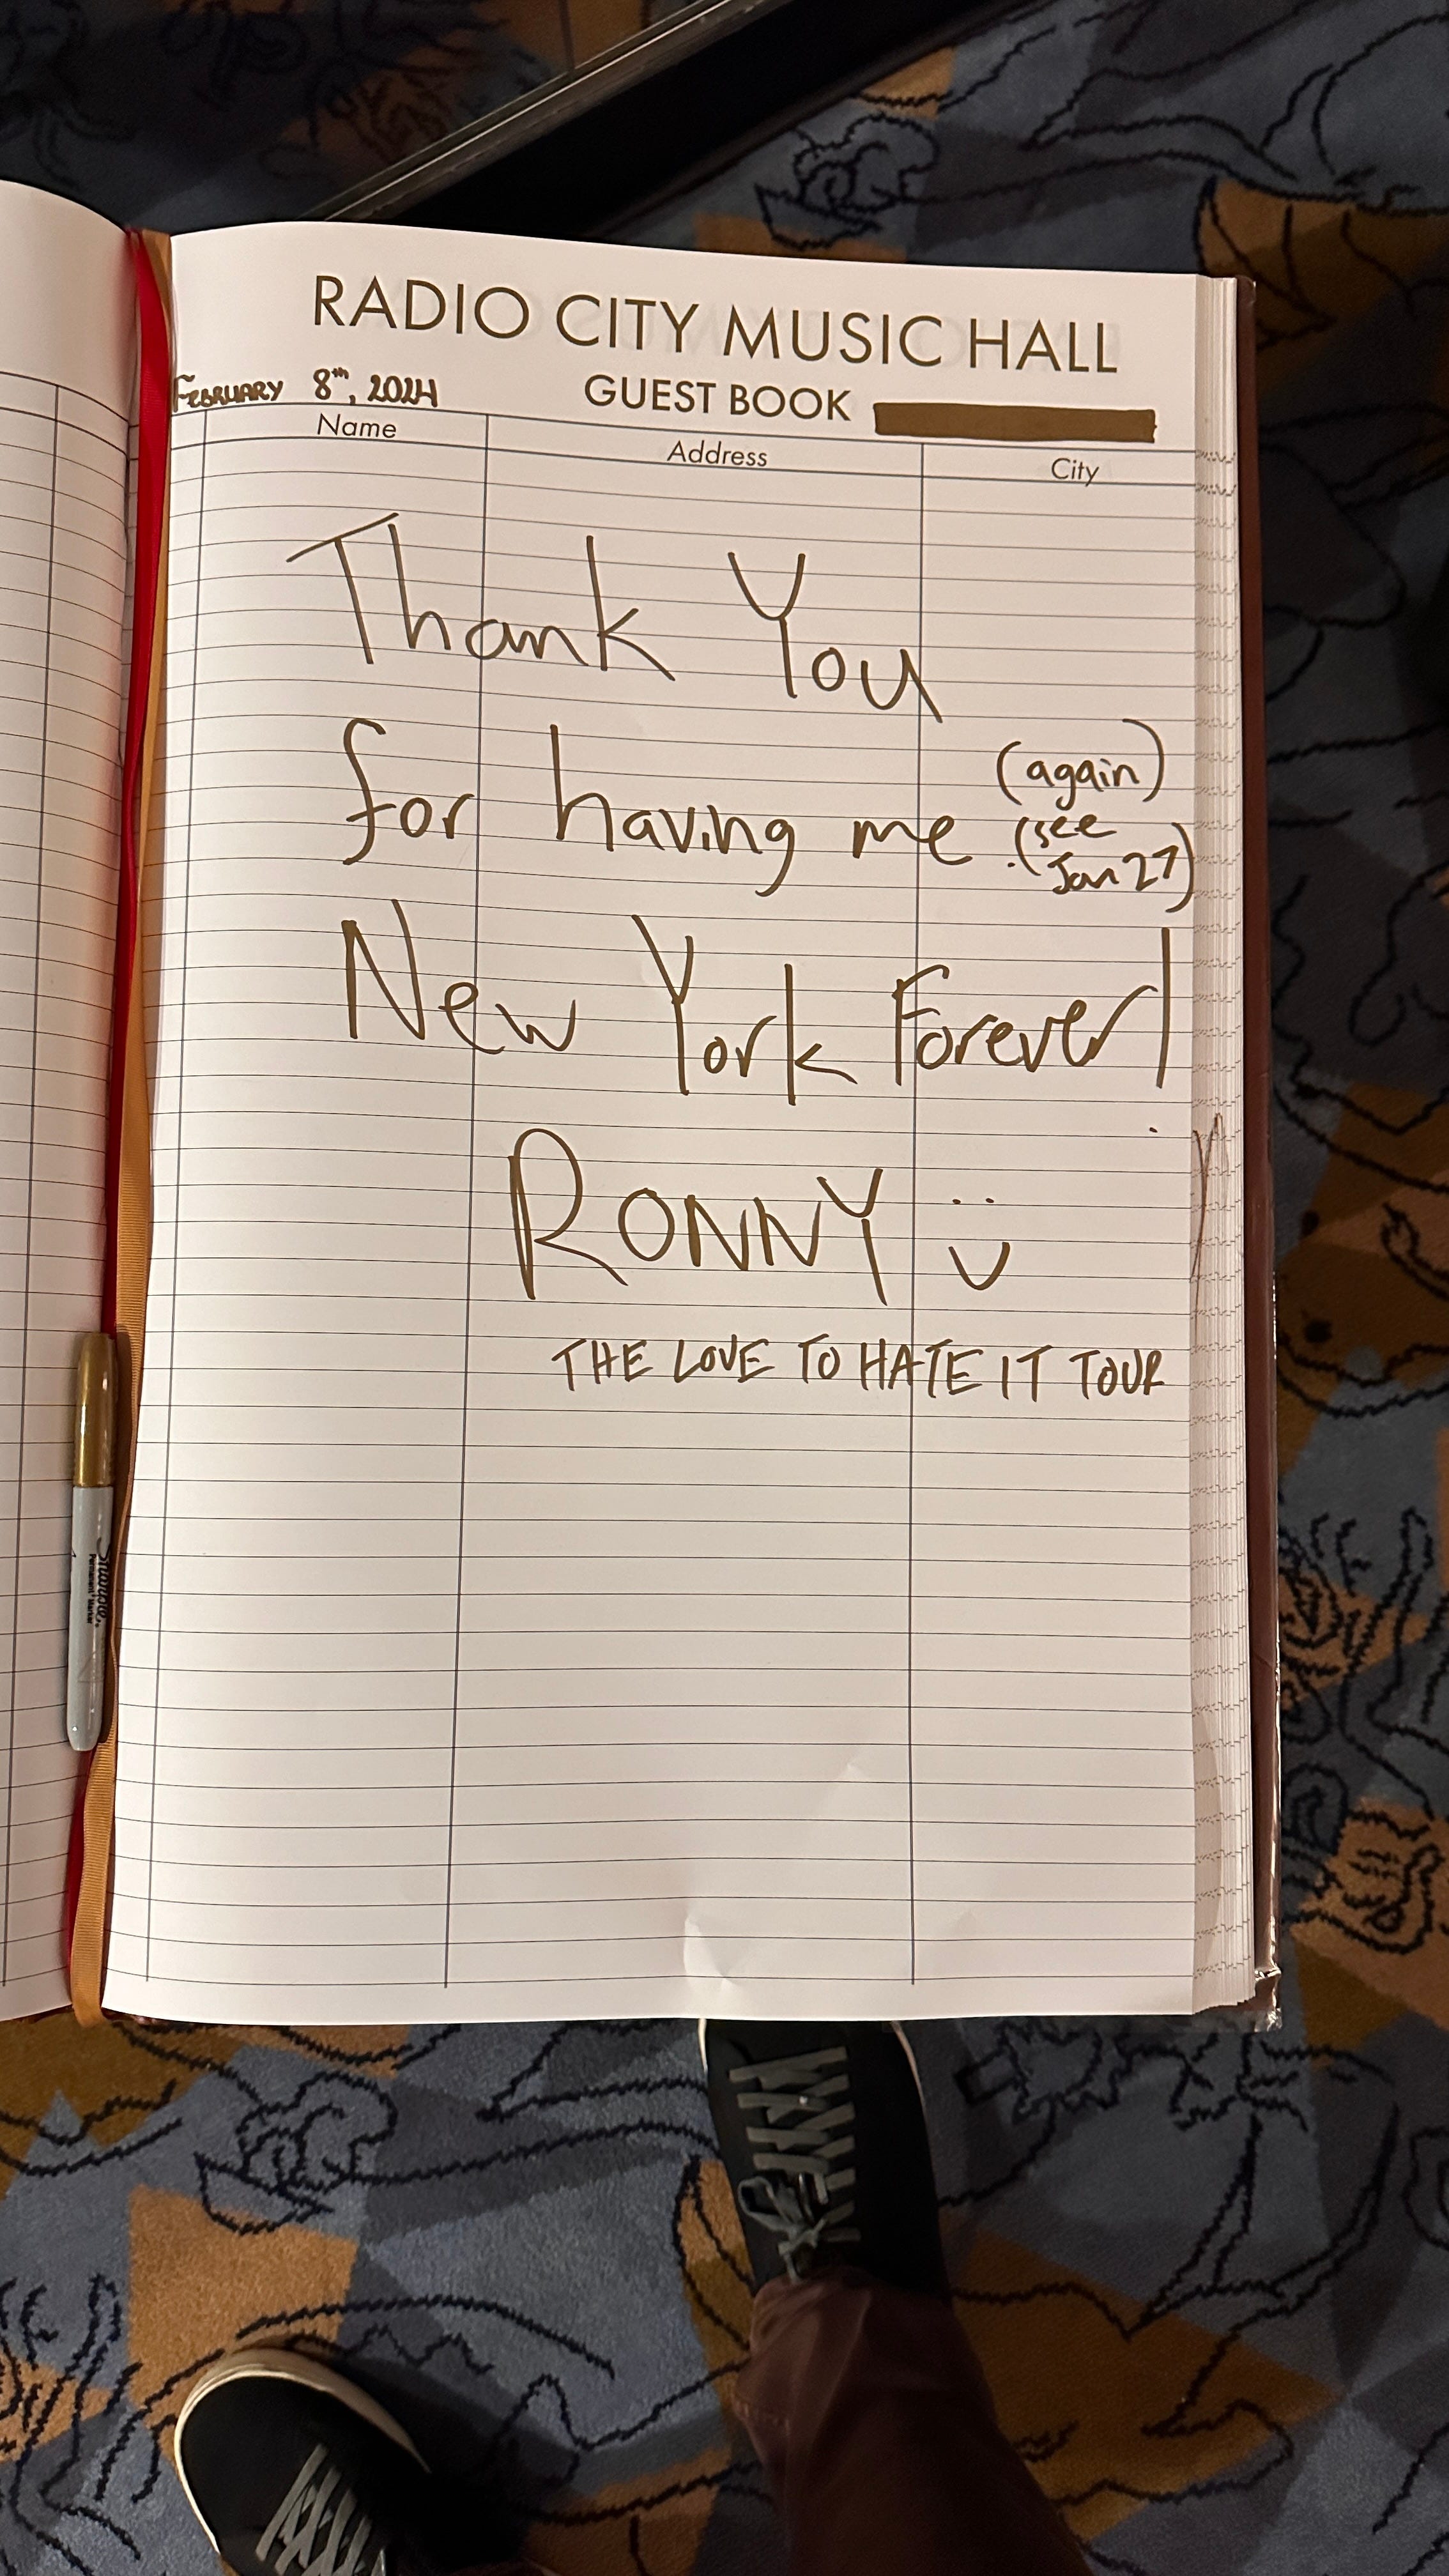 RADIO CITY MUSIC HALL
February 8th, 2024 GUEST BOOK
Name Address City
Thank You
for having me (again)
(see
Jan 27)
New York Forever!
RONNY :)
THE LOVE TO HATE IT TOUR
Sharpie
Permanent Marker